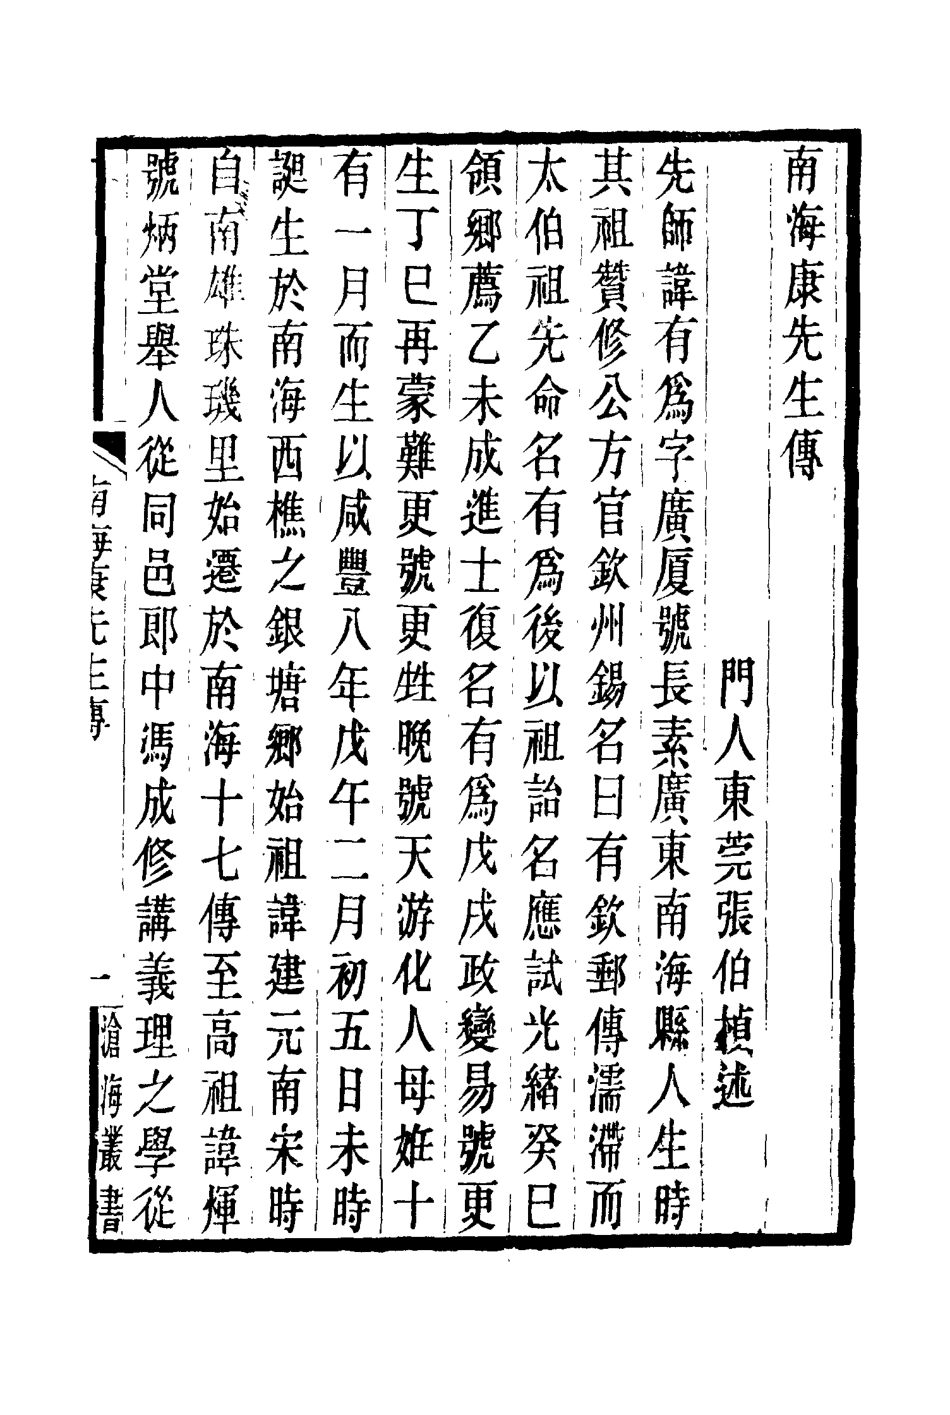 南海康先生傳
門人東莞張伯楨述
先師諱有爲字廣厦號長素廣東南海縣人生時
其祖贊修公方官欽州錫名曰有欽郵傳濡滯而
太伯祖先命名有爲後以祖詒名應試光緒癸巳
領鄉薦乙未成進士復名有爲戊戌政變易號更
生丁巳再蒙難更號更甡晚號天游化人母姙十
有一月而生以咸豐八年戊午二月初五日未時
誕生於南海西樵之銀塘鄉始祖諱建元南宋時
自南雄珠璣里始遷於南海十七傳至高祖諱煇
號炳堂舉人從同邑郎中馮成修講義理之學從
南海康先生傳
一
滄海叢書